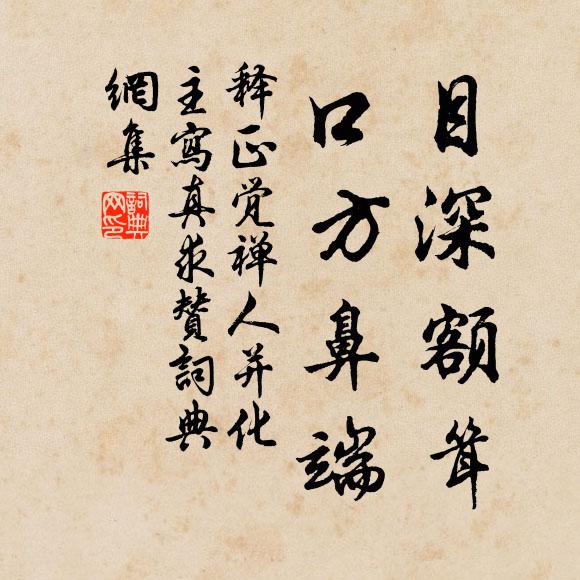 目深额耸
口方鼻端
释正觉禅人并化
主寫真求贊詞典
網集
詞典網印